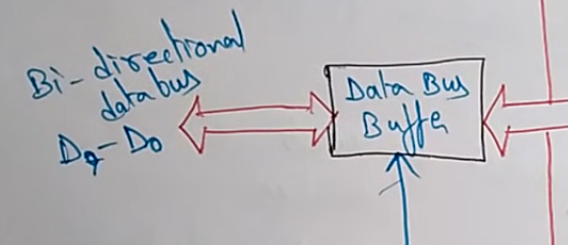 Bi-directional
data bus
D7-D0
Data Bus
Buffer